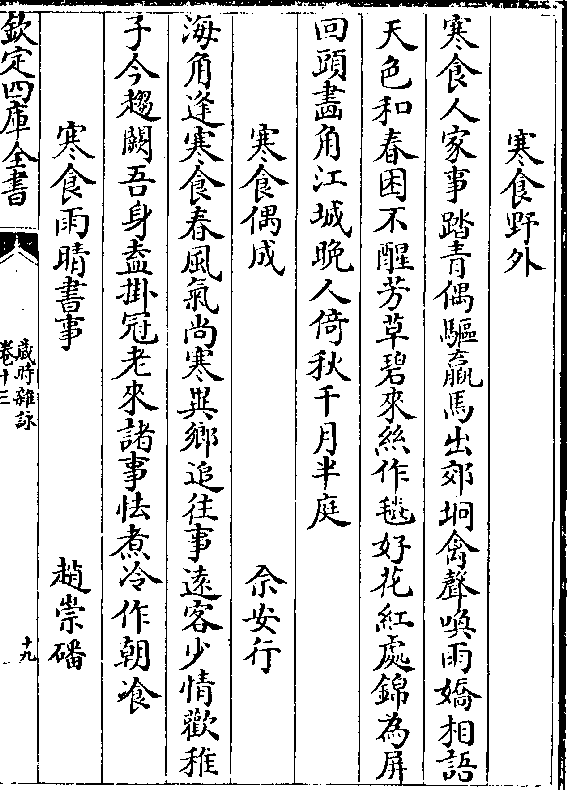 寒食野外
寒食人家事踏青偶驅羸馬出郊坰禽聲喚雨嬌相語
天色和春困不醒芳草碧來絲作毯好花紅處錦為屏
回頭畫角江城晚人倚秋千月半庭
寒食偶成 余安行
海角逢寒食春風氣尚寒異鄉追往事遠客少情歡稚
子今趨闕吾身盍掛冠老來諸事怯煮冷作朝飡
寒食雨晴書事 趙崇磻
欽定四庫全書
歲時雜詠
卷十三
十九